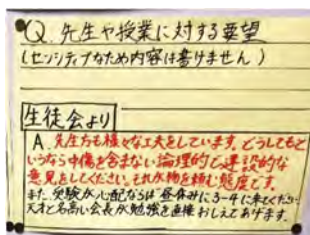 Q. 先生や授業に対する要望
(センシティブなため内容は書けません)
生徒会より
A. 先生方も様々な工夫をしています。どうしてもと
いうなら中傷を含まない論理的で建設的な
意見をしてください。それが物を頼む態度です。
また、受験が心配ならば昼休みに3-4に来てください。
天才と名高い会長が勉強を直接おしえてあげます。